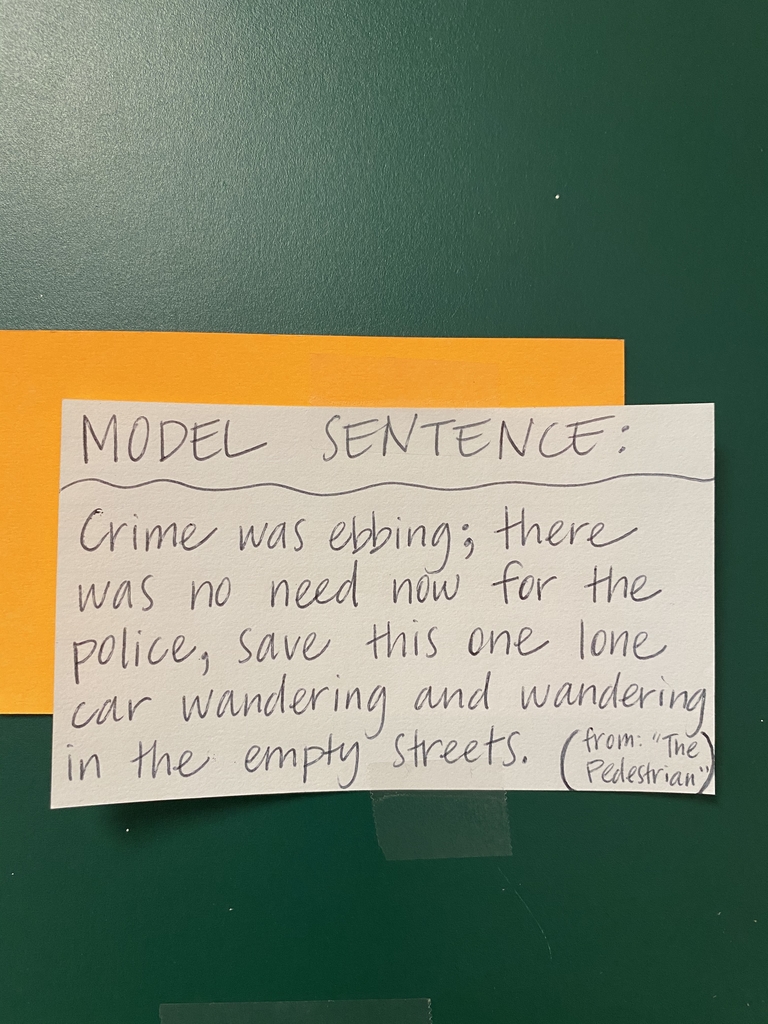 MODEL SENTENCE:
Crime was ebbing; there
was no need now for the
police, save this one lone
car wandering and wandering
in the empty streets.
(from: "The
Pedestrian")